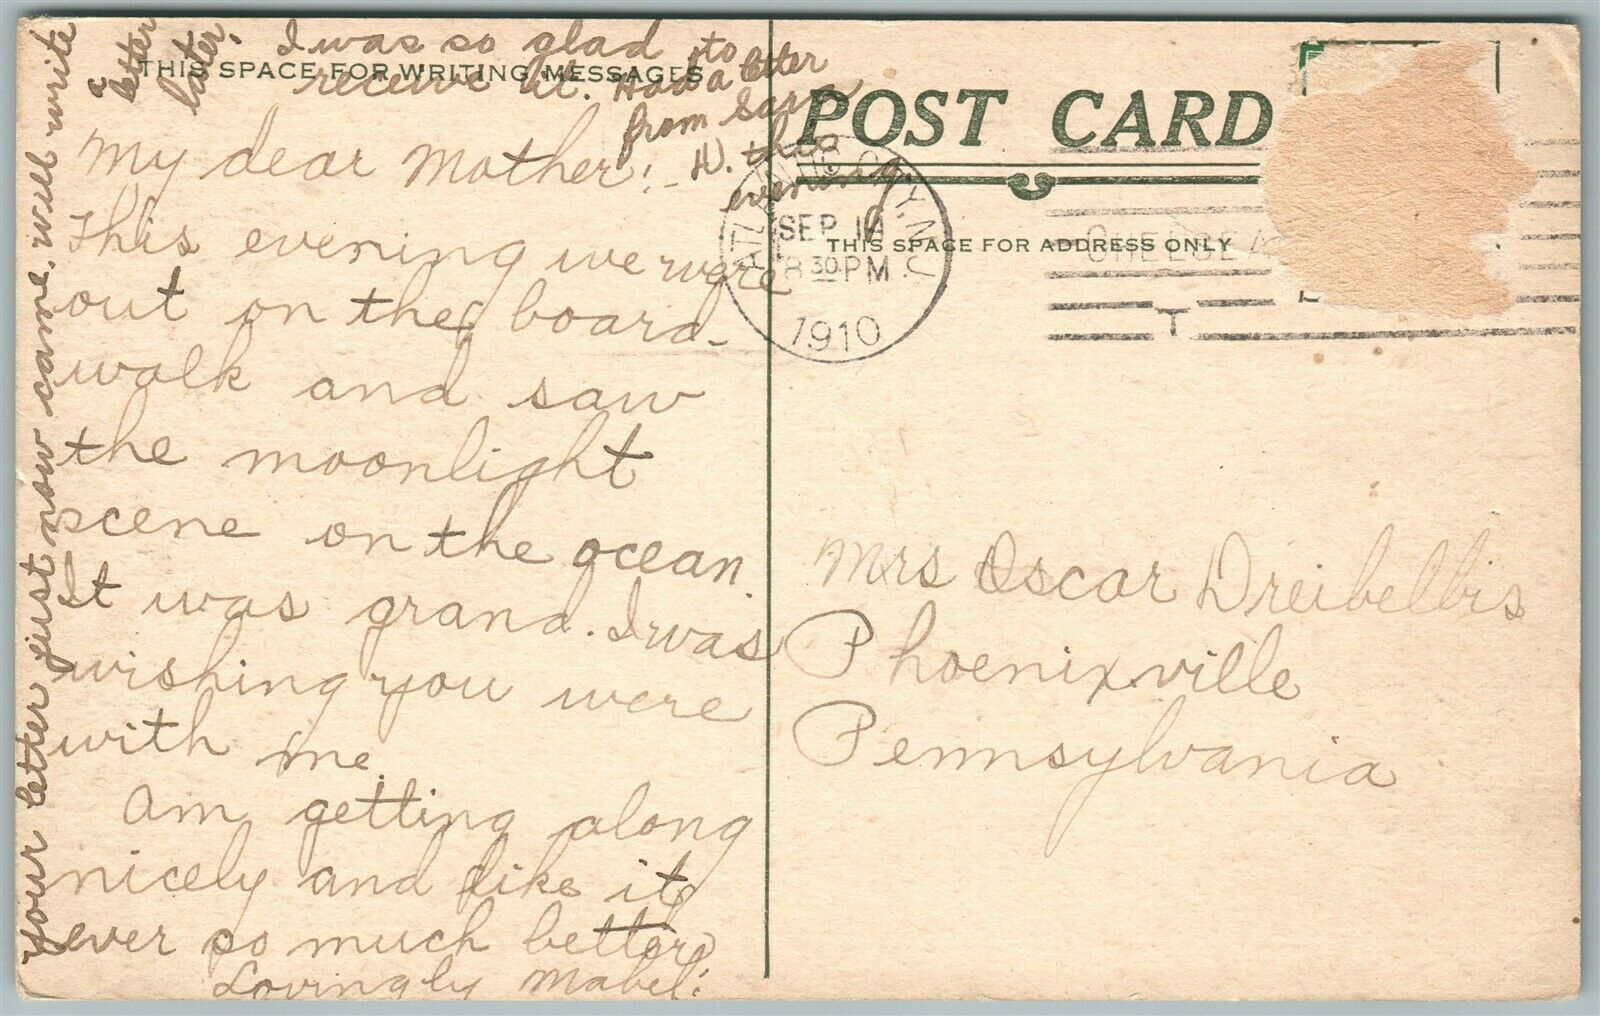 THIS SPACE FOR WRITING MESSAGES
My dear Mother:-
This evening we were
out on the board-
walk and saw
the moonlight
scene on the ocean.
It was grand. I was
wishing you were
with me.
Am getting along
nicely and like it
ever so much better.
Lovingly Mabel.
your letter just now came, will write
a letter
later.
I was so glad to
receive it. Had a letter
from Sara
W. this
evening.
POST CARD
THIS SPACE FOR ADDRESS ONLY
ATLANTIC CITY, N.J.
SEP 14
8 30 PM
1910
CHELSEA
T
Mrs Oscar Dreibelbis
Phoenixville
Pennsylvania